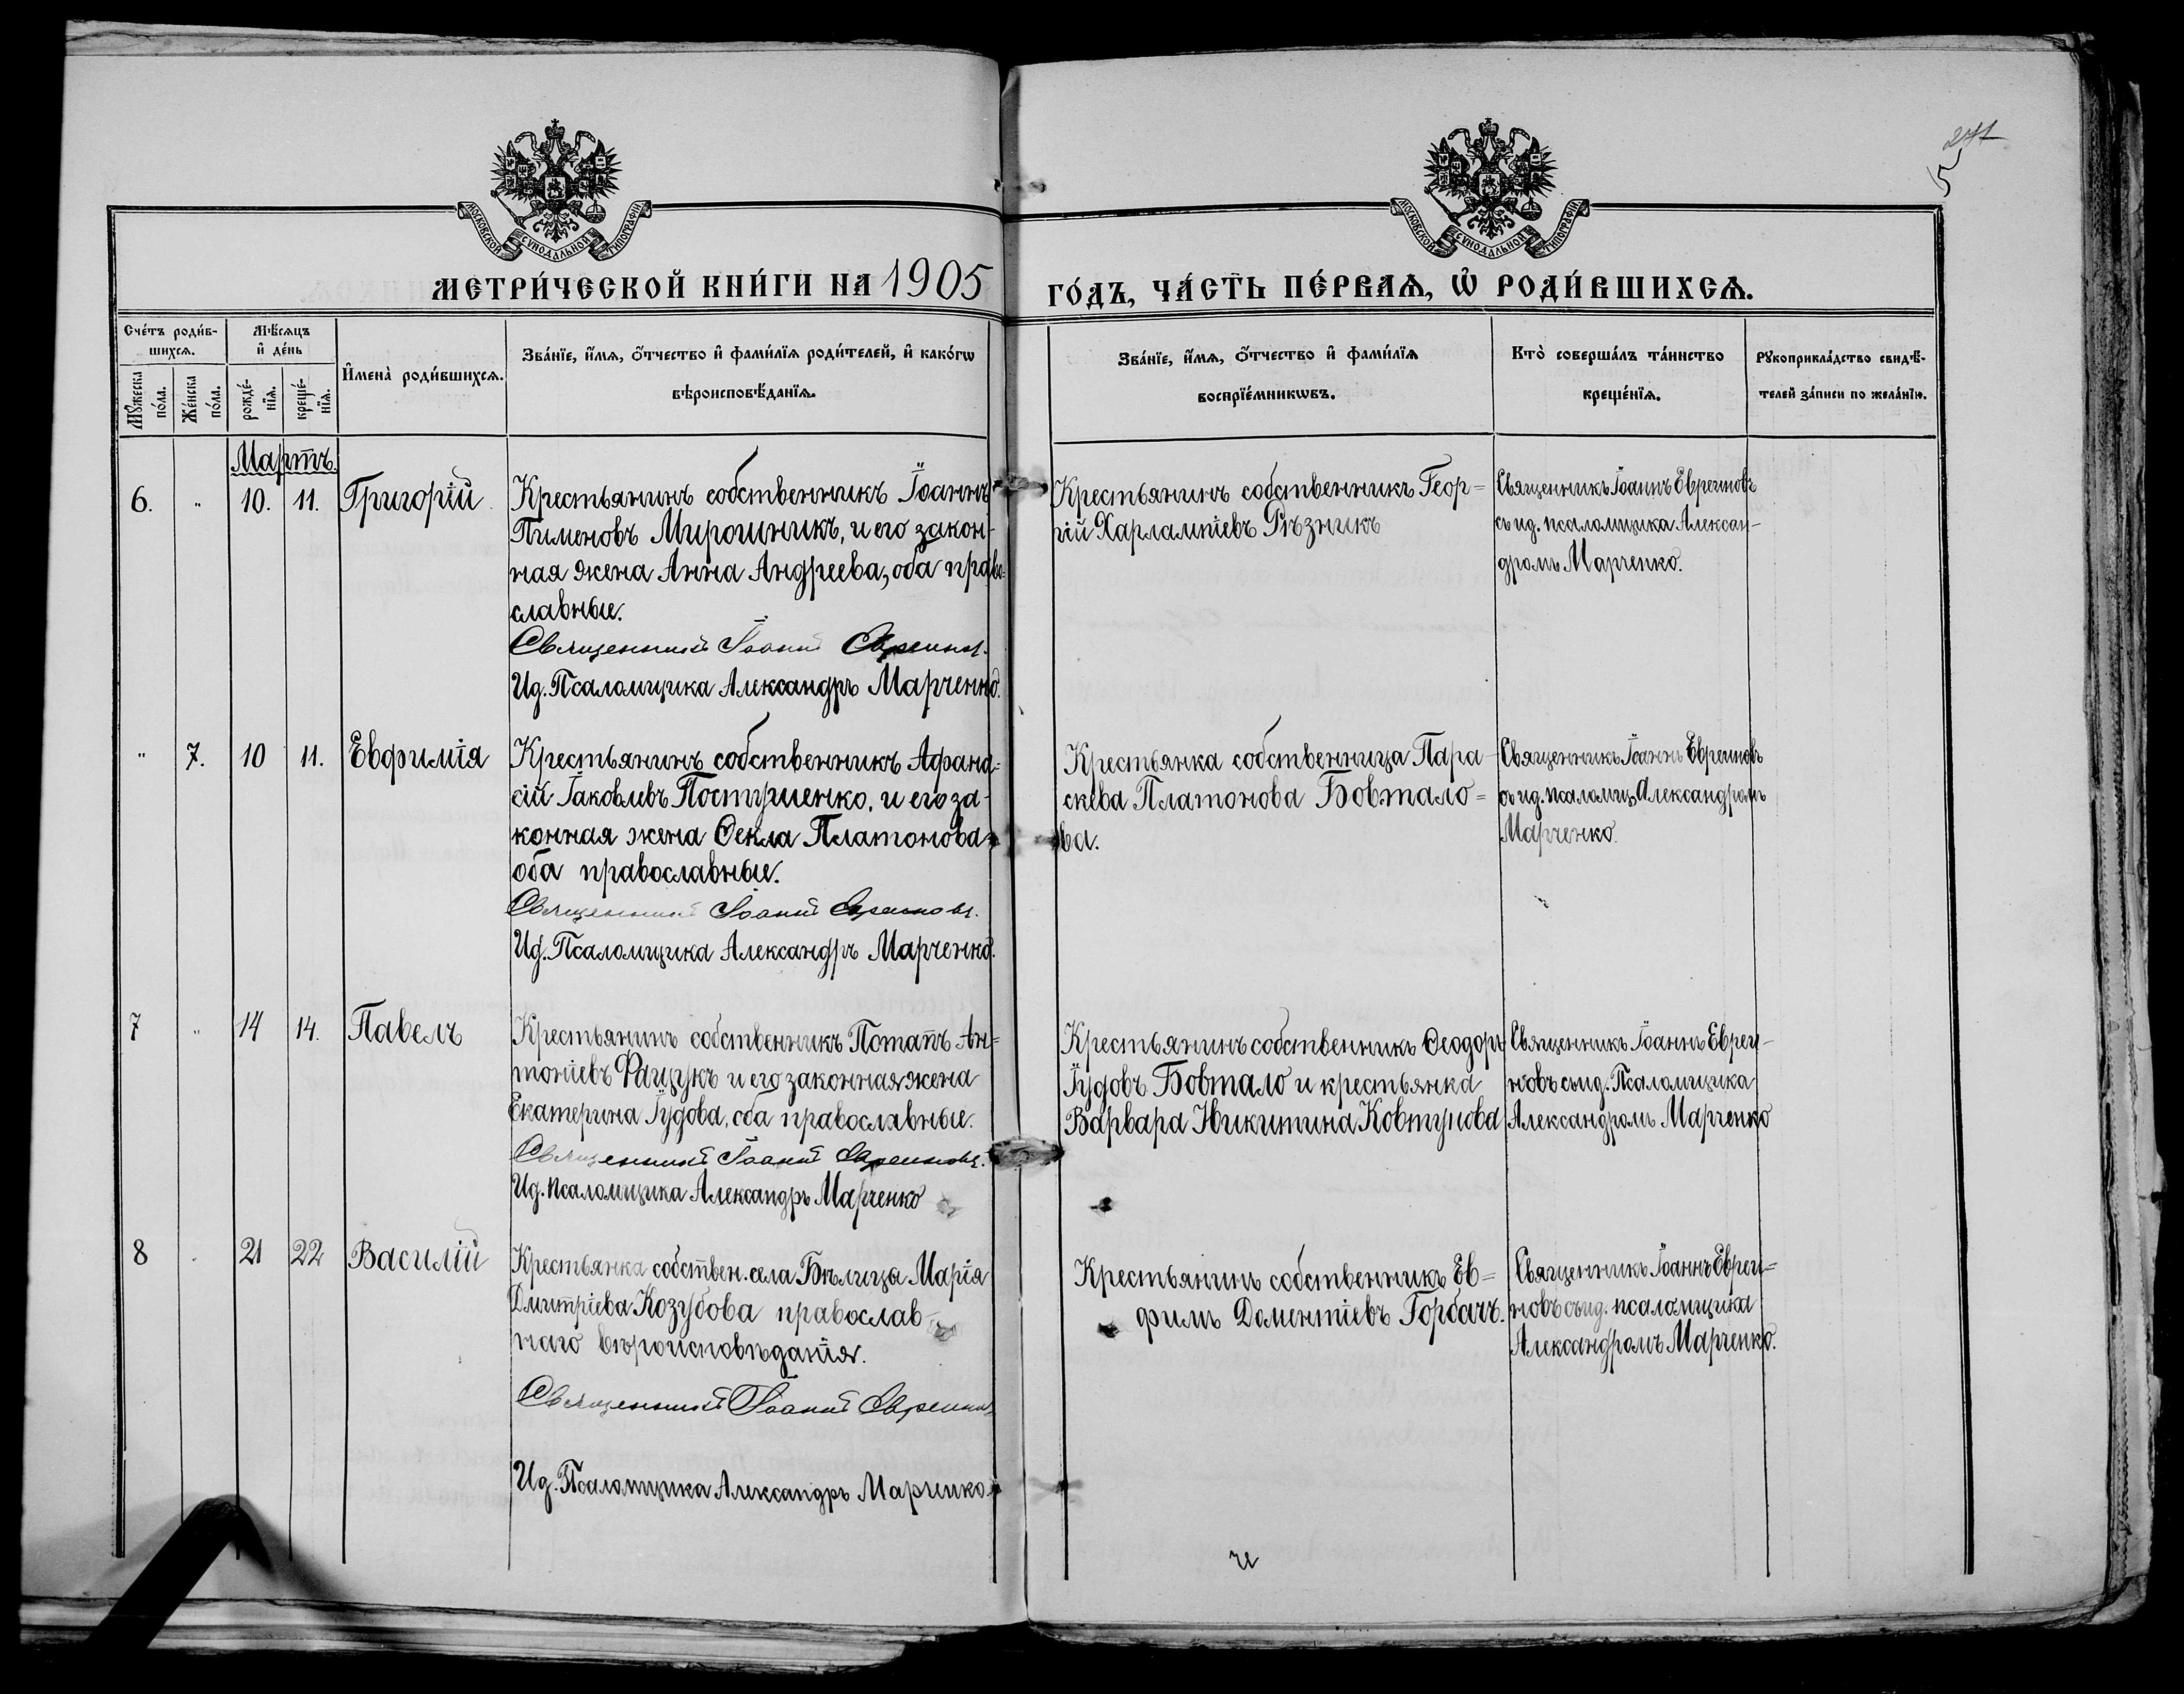 271
5
МОСКОВСКОЙ СѴНОДАЛЬНОЙ ТИПОГРАФІИ
МОСКОВСКОЙ СѴНОДАЛЬНОЙ ТИПОГРАФІИ
МЕТРИ́ЧЕСКОЙ КНИ́ГИ НА 1905 ГО́ДЪ, ЧА́СТЬ ПЕ́РВАѦ, Ѡ҆ РОДИ́ВШИХСѦ.
Сче́тъ роди́в-
шихсѧ.
Мѣ́сѧцъ
и҆ де́нь
Мꙋ́жеска
по́ла.
Же́нска
по́ла.
рожде́-
нїѧ.
креще́-
нїѧ.
И҆мена̀ роди́вшихсѧ.
Зва́нїе, и҆́мѧ, ѻ҆́тчество и҆ фами́лїѧ роди́телей, и҆ како́гѡ
вѣроисповѣ́данїѧ.
Зва́нїе, и҆́мѧ, ѻ҆́тчество и҆ фами́лїѧ
воспрїе́мникѡвъ.
Кто̀ соверша́лъ та́инство
креще́нїѧ.
Рꙋкоприкла́дство свидѣ́-
телей за́писи по жела́нїю.
Мартъ.
6. " 10. 11. Григорій
Крестьянинъ собственникъ Іоаннъ
Пименовъ Мирошникъ, и его закон-
ная жена Анна Андреева, оба право-
славные.
Священникъ Іоаннъ Евреиновъ.
Ид. Псаломщика Александръ Марченко.
Крестьянинъ собственникъ Геор=
гій Харлампіевъ Рѣзникъ
Священникъ Іоаннъ Евреиновъ
съ ид. псаломщика Алексан-
дромъ Марченко.
" 7. 10 11. Евфимія
Крестьянинъ собственникъ Афана=
сій Іаковлевъ Постушенко, и его за-
конная жена Ѳекла Платонова,
оба православные.
Священникъ Іоаннъ Евреиновъ.
Ид. Псаломщика Александръ Марченко.
Крестьянка собственница Пара-
скева Платонова Бовтало=
ва.
Священникъ Іоаннъ Евреиновъ
съ ид. псаломщ. Александромъ
Марченко.
7 " 14 14. Павелъ
Крестьянинъ собственникъ Потапъ Ан=
тоніевъ Фащукъ и его законная жена
Екатерина Іудова, оба православные.
Священникъ Іоаннъ Евреиновъ.
Ид. псаломщика Александръ Марченко
Крестьянинъ собственникъ Ѳеодоръ
Іудовъ Бовтало и крестьянка
Варвара Никитина Ковтунова
Священникъ Іоаннъ Евреи-
новъ съ ид. Псаломщика
Александромъ Марченко
8 21 22 Василій
Крестьянка собствен. села Бѣлицы Марія
Дмитріева Козубова православ-
наго вѣроисповѣданія.
Священникъ Іоаннъ Евреиновъ
Ид. Псаломщика Александръ Марченко.
Крестьянинъ собственникъ Ев=
фимъ Доментіевъ Горбачъ.
Священникъ Іоаннъ Евреи=
новъ съ ид. псаломщика
Александромъ Марченко.